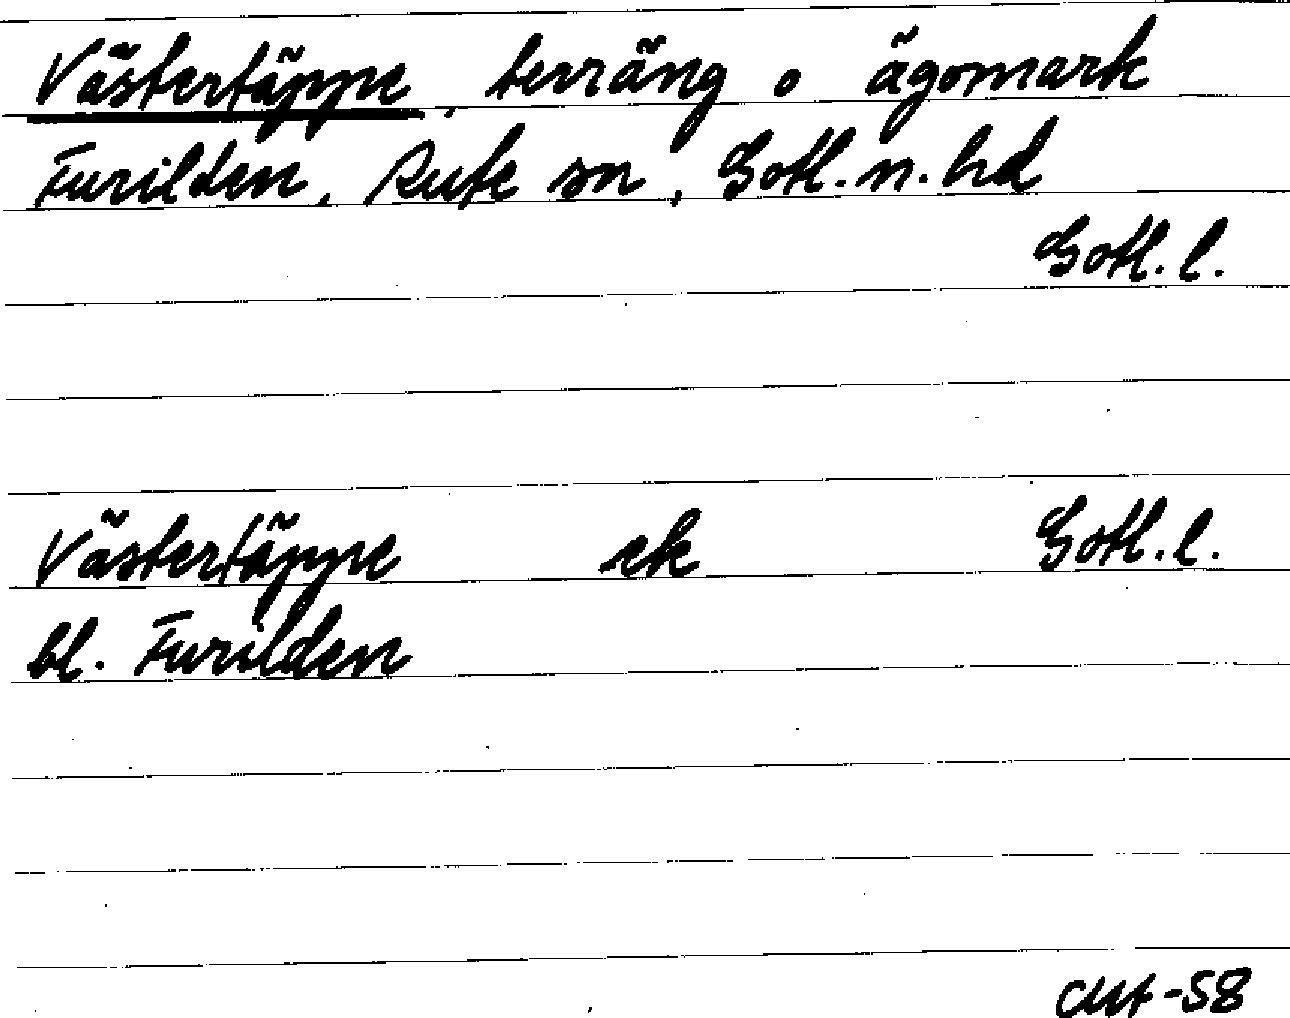 Västertäppe, terräng o ägomark
Furilden, Rute sn, Gotl. n. hd
Gotl. l.
Västertäppe ek Gotl. l.
bl. Furilden